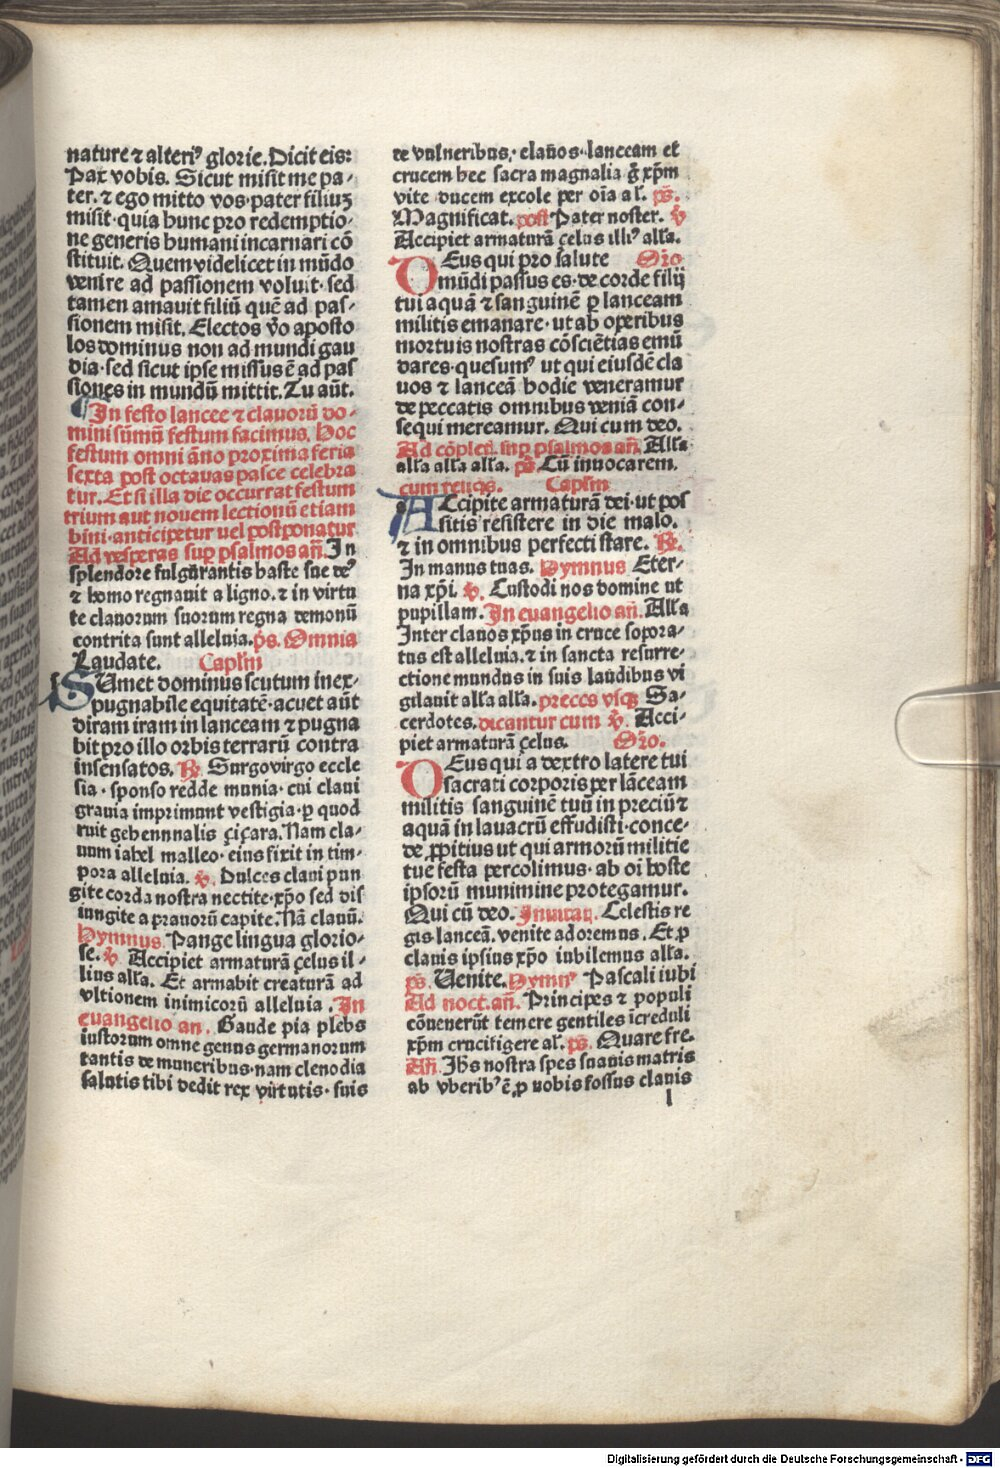 nature ⁊ alteriꝰ glorie. Dicit eis:
Pax vobis. Sicut misit me pa-
ter. ⁊ ego mitto vos. pater filiuꝫ
misit. quia hunc pro redemptio-
ne generis humani incarnari cō
stituit. Quem videlicet in mūdo
venire ad passionem voluit. sed
tamen amauit filiū quē ad pas-
sionem misit. Electos ṽo aposto
los dominus non ad mundi gau
dia. sed sicut ipse missus ē ad pas
siones in mundū mittit. Tu aūt.
In festo lancee ⁊ clauorū do-
mini sūmū festum facimus. Hoc
festum omni āno proxima feria
sexta post octauas pasce celebra
tur. Et si illa die occurrat festum
trium aut nouem lectionū etiam
bini. anticipetur vel postponatur
Ad vesperas sup psalmos añ. In
splendore fulgurantis haste sue deꝰ
⁊ homo regnauit a ligno. ⁊ in virtu
te clauorum suorum regna demonū
contrita sunt alleluia. ps. Omnia
Laudate. Caplm
SUmet dominus scutum inex-
pugnabile equitatē. acuet aūt
diram iram in lanceam ⁊ pugna
bit pro illo orbis terrarū contra
insensatos. ℟ Surgo virgo eccle
sia. sponso redde munia. cui claui
grauia imprimunt vestigia. ꝑ quod
ruit gehennalis çiçara. Nam cla-
uum iahel malleo. eius fixit in tim-
pora alleluia. ℣. Dulces claui pun
gite corda nostra nectite. xp̄o sed dis
iungite a prauorū capite. Nā clauū.
Hymnus. Pange lingua glorio-
se. ℣ Accipiet armaturā çelus il-
lius alła. Et armabit creaturā ad
vltionem inimicorū alleluia. In
euangelio an. Gaude pia plebs
iustorum omne genus germanorum
tantis de muneribus. nam clenodia
salutis tibi dedit rex virtutis. suis
de vulneribus. clauos. lanceam et
crucem hec sacra magnalia g̃ xp̄m
vite ducem excole per oīa al. ps.
Magnificat. post Pater noster. ℣
Accipiet armaturā çelus illiꝰ alła.
DEus qui pro salute Or̄o
mūdi passus es. de corde filij
tui aquā ⁊ sanguinē ꝑ lanceam
militis emanare. ut ab operibus
mortuis nostras cōsciētias emū
dares. quesumꝰ ut qui eiusdē cla
uos ⁊ lanceā hodie veneramur
de peccatis omnibus veniā con-
sequi mereamur. Qui cum deo.
Ad cōpleť. sup psalmos añ. Alła
alła alła alła. ps. Cū inuocarem.
cum reliqs. Caplm
ACcipite armaturā dei. ut pos
sitis resistere in die malo.
⁊ in omnibus perfecti stare. ℟.
In manus tuas. Hymnus Eter-
na xp̄i. ℣. Custodi nos domine ut
pupillam. In euangelio añ. Alła
Inter clauos xp̄us in cruce sopora-
tus est alleluia. ⁊ in sancta resurre-
ctione mundus in suis laudibus vi
gilauit alła alła. preces vsqꝫ Sa-
cerdotes. dicantur cum ℣. Acci-
piet armaturā çelus. Or̄o.
DEus qui a dextro latere tui
sacrati corporis per lāceam
militis sanguinē tuū in preciū ⁊
aquā in lauacrū effudisti. conce-
de ꝓpitius ut qui armorū militie
tue festa percolimus. ab oī hoste
ipsorū munimine protegamur.
Qui cū deo. Inuitať. Celestis re
gis lanceā. venite adoremus. Et ꝑ
clauis ipsius xp̄o iubilemus alła.
ps. Uenite. Hymnꝰ Pascali iubi
Ad nocť. añ. Principes ⁊ populi
cōuenerūt temere gentiles īcreduli
xp̄m crucifigere al. ps. Quare fre.
Añ. Jhs nostra spes suauis matris
ab vberibꝰ ē ꝓ nobis fossus clauis
l
Digitalisierung gefördert durch die Deutsche Forschungsgemeinschaft - DFG